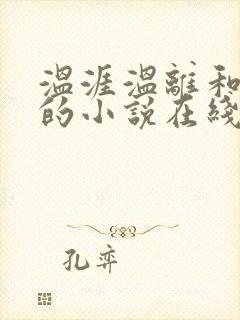 温涯温離和
的小説在綫
孔弈